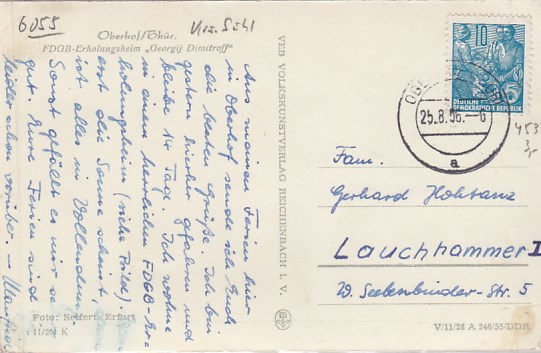 6055
Nov. 5541
Oberhof/Thür.
FDGB-Erholungsheim „Georgij Dimitroff"
Aus meinen Ferien hier
in Oberhof sende ich Euch
die besten Grüße. Ich bin
gestern hierher gefahren und
bleibe 14 Tage. Ich wohne
in einem herrlichen FDGB-Er-
holungsheim (siehe Bild),
erst die Sonne scheint,
ist alles in Vollendung.
Sonst gefällt es mir se
gut. Eure Ferien sind
leider schon vorüber. –
Foto: Seifert, Erfurt
VEB VOLKSKUNSTVERLAG REICHENBACH I. V.
10
Deutsche
DEMOKRATISCHE REPUBLIK
25.8.56.
a
453
Fam.
Gerhard
Lauchhammer I
W. Seelenbinder-Str. 5
V/11/28 A 246/55/DDR